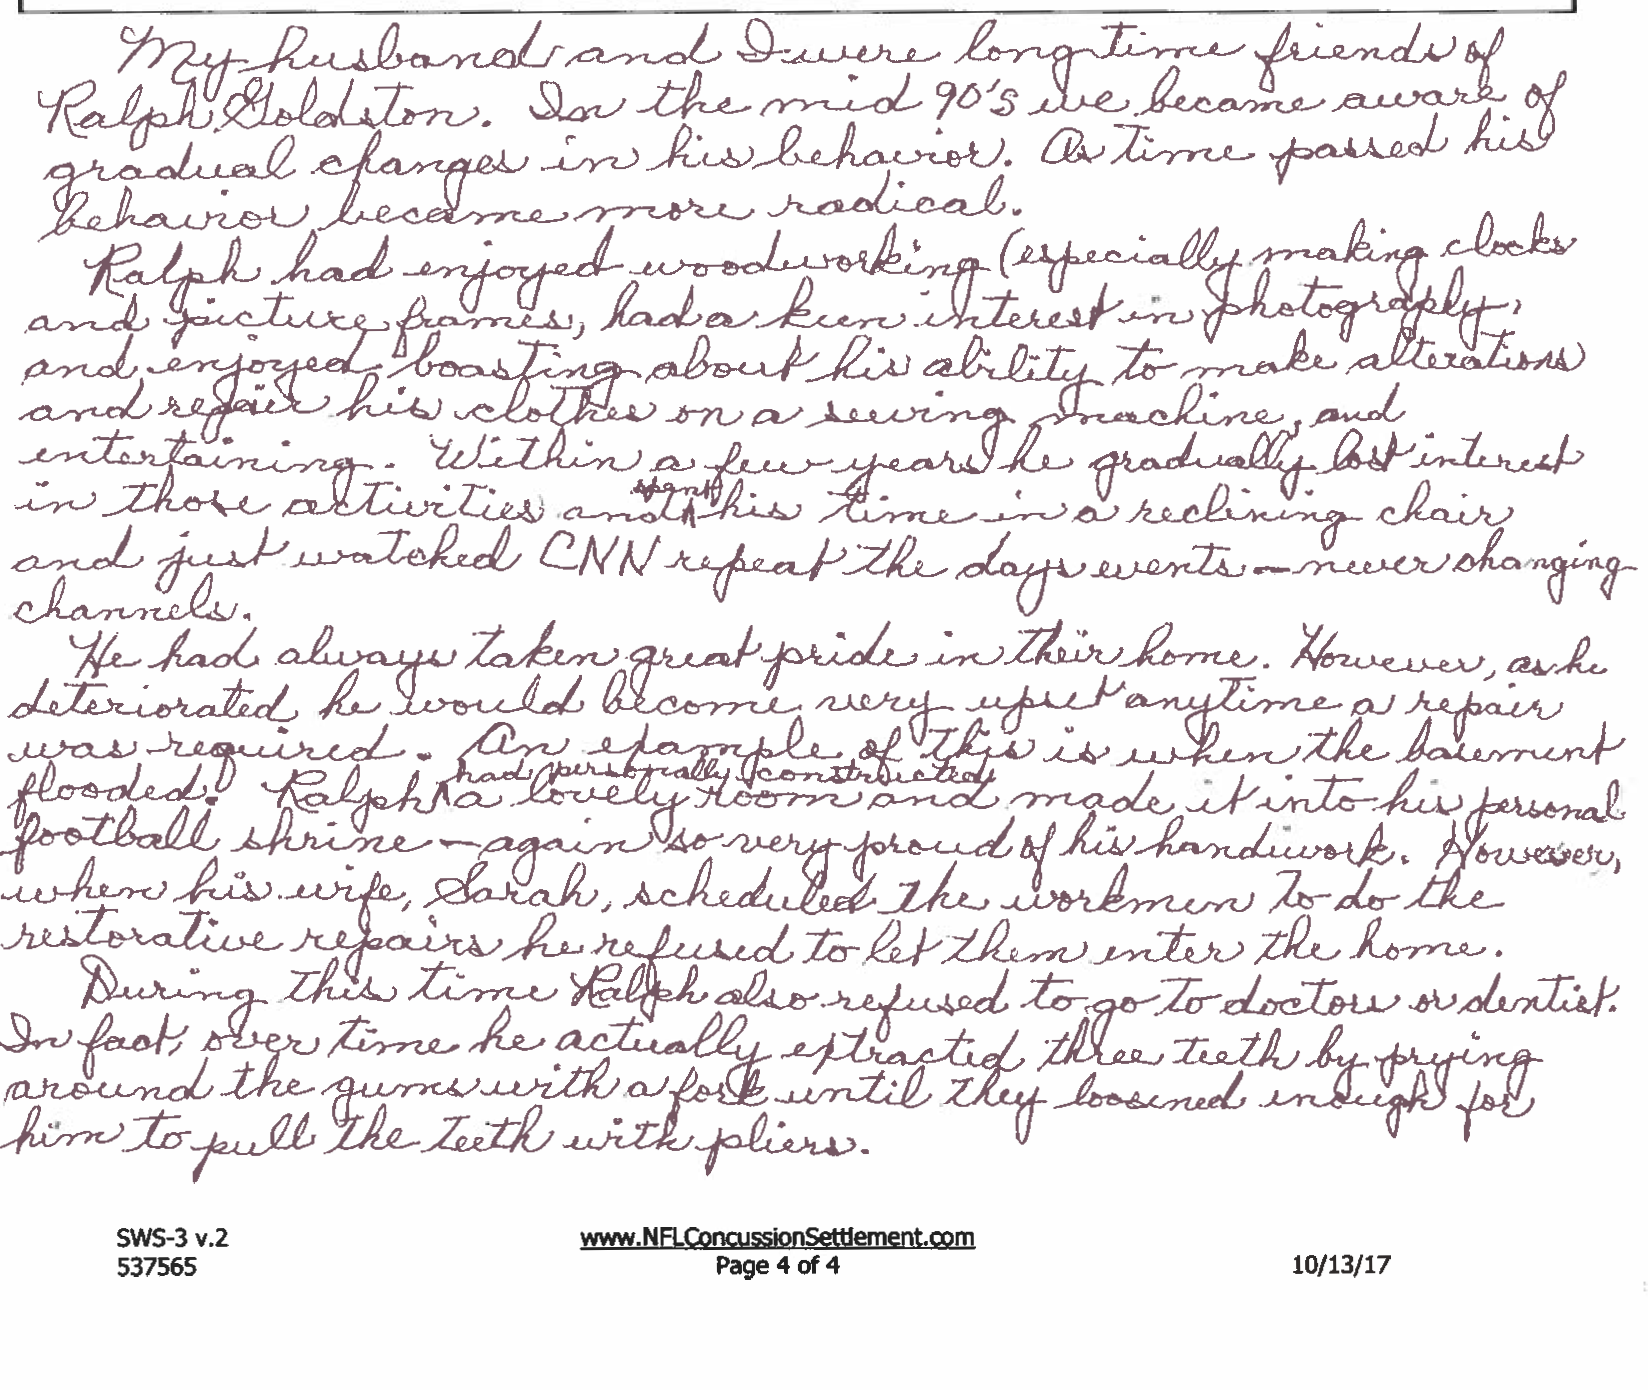 My husband and I were longtime friends of
Ralph Goldston. In the mid 90's we became aware of
gradual changes in his behavior. As time passed his
behavior became more radical.
Ralph had enjoyed woodworking (especially making clocks
and picture frames, had a keen interest in photography,
and enjoyed boasting about his ability to make alterations
and repair his clothes on a sewing machine, and
entertaining. Within a few years he gradually lost interest
in those activities and spent his time in a reclining chair
and just watched CNN repeat the days events – never changing
channels.
He had always taken great pride in their home. However, as he
deteriorated he would become very upset anytime a repair
was required. An example of this is when the basement
flooded. Ralph had personally constructed a lovely room and made it into his personal
football shrine – again so very proud of his handiwork. However,
when his wife, Sarah, scheduled the workmen to do the
restorative repairs he refused to let them enter the home.
During this time Ralph also refused to go to doctors or dentist.
In fact, over time he actually extracted three teeth by prying
around the gums with a fork until they loosened enough for
him to pull the teeth with pliers.
SWS-3 v.2 www.NFLConcussionSettlement.com
537565 Page 4 of 4 10/13/17